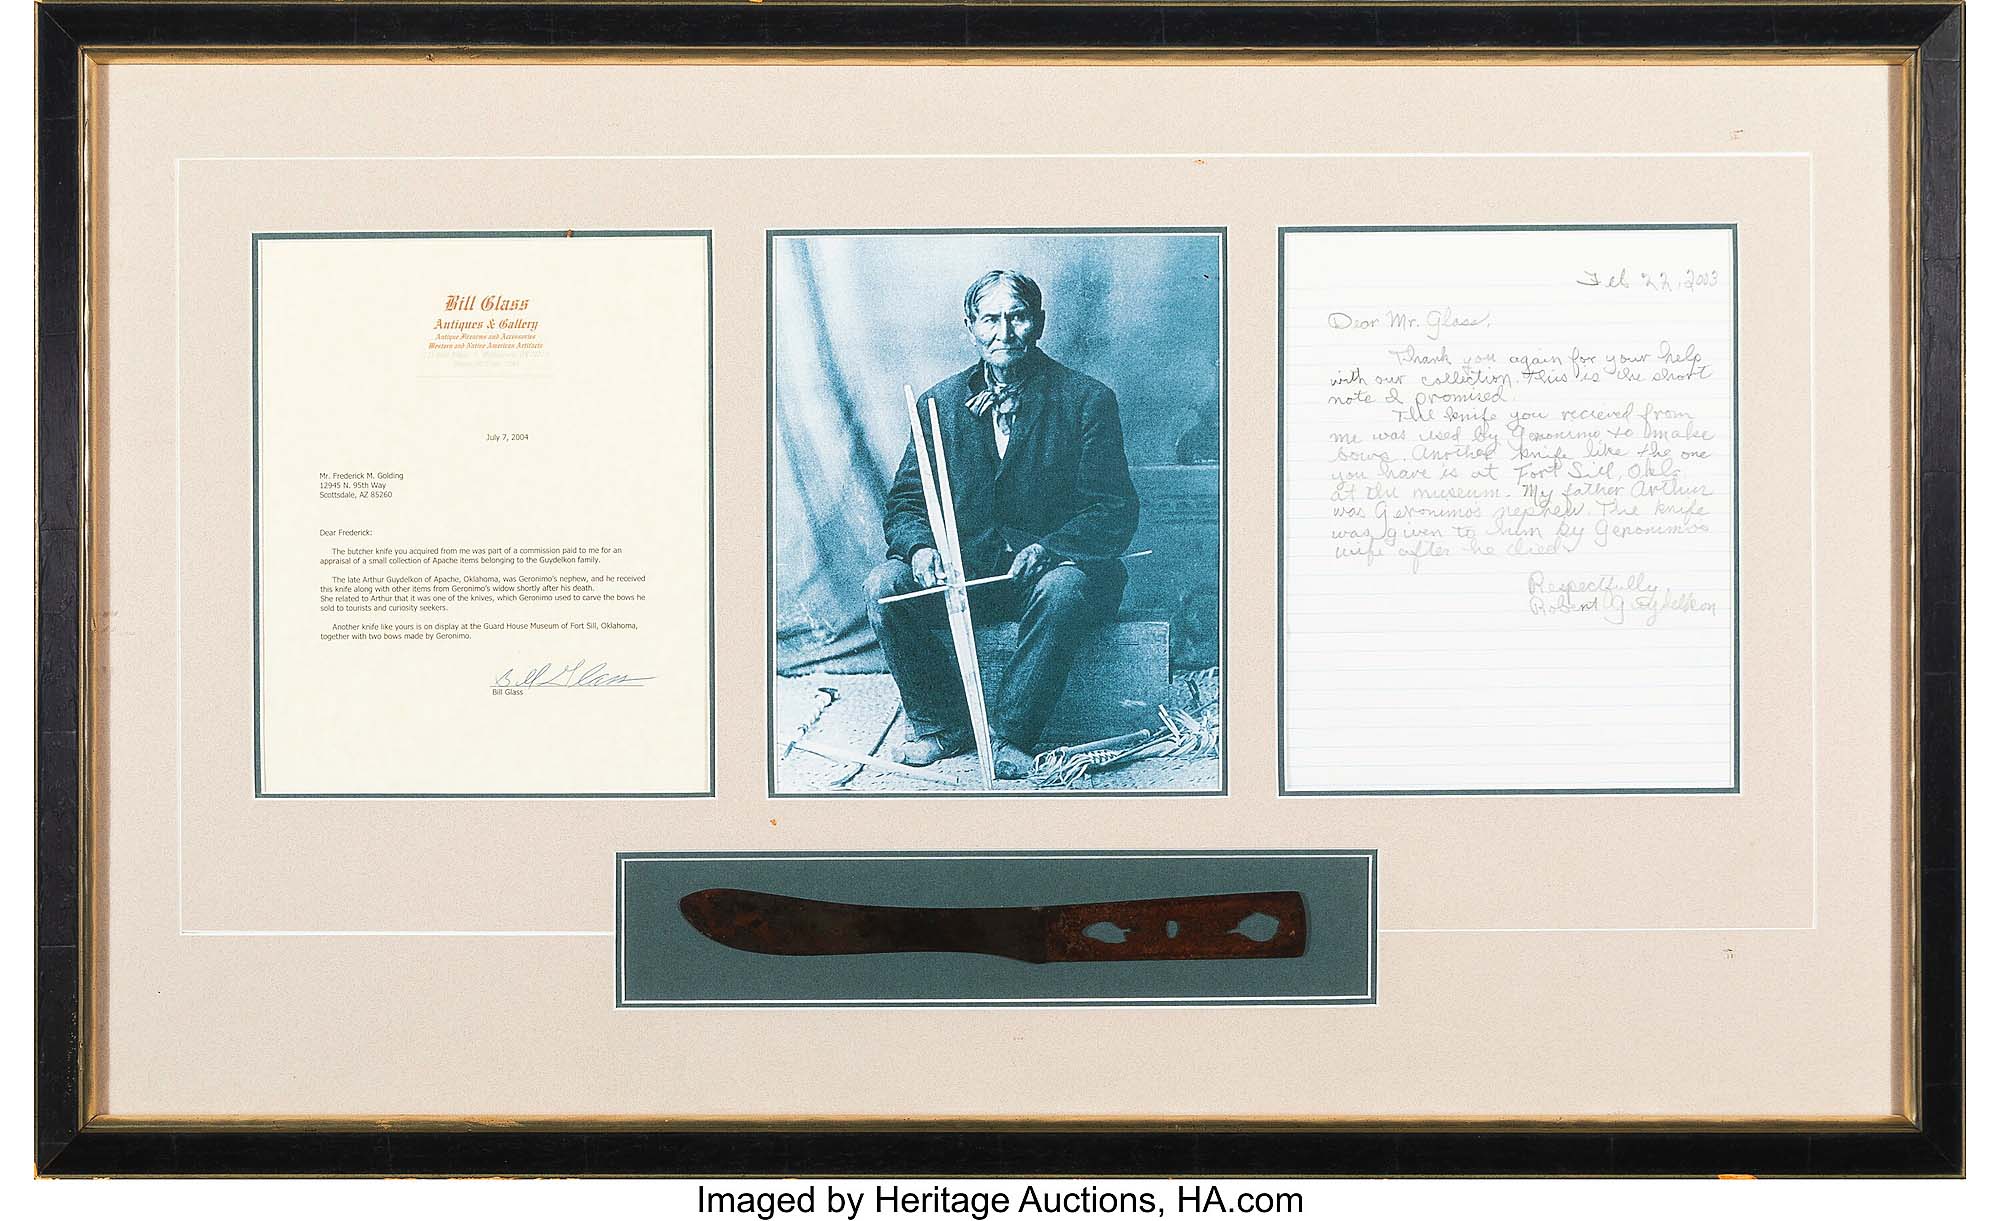 Bill Glass
Antiques & Gallery
Antique Firearms and Accessories
Western and Native American Artifacts
July 7, 2004
Mr. Frederick M. Golding
12945 N. 95th Way
Scottsdale, AZ 85260
Dear Frederick:
The butcher knife you acquired from me was part of a commission paid to me for an
appraisal of a small collection of Apache items belonging to the Guydelkon family.
The late Arthur Guydelkon of Apache, Oklahoma, was Geronimo's nephew, and he received
this knife along with other items from Geronimo's widow shortly after his death.
She related to Arthur that it was one of the knives, which Geronimo used to carve the bows he
sold to tourists and curiosity seekers.
Another knife like yours is on display at the Guard House Museum of Fort Sill, Oklahoma,
together with two bows made by Geronimo.
Bill Glass
Bill Glass
Feb 22, 2003
Dear Mr. Glass,
Thank you again for your help
with our collection. This is the short
note I promised.
The knife you recieved from
me was used by Geronimo to make
bows. Another knife like the one
you have is at Fort Sill, Okla
at the museum. My father Arthur
was Geronimos nephew. The knife
was given to him by Geronimos
wife after he died.
Respectfully
Robert Guydelkon
Imaged by Heritage Auctions, HA.com